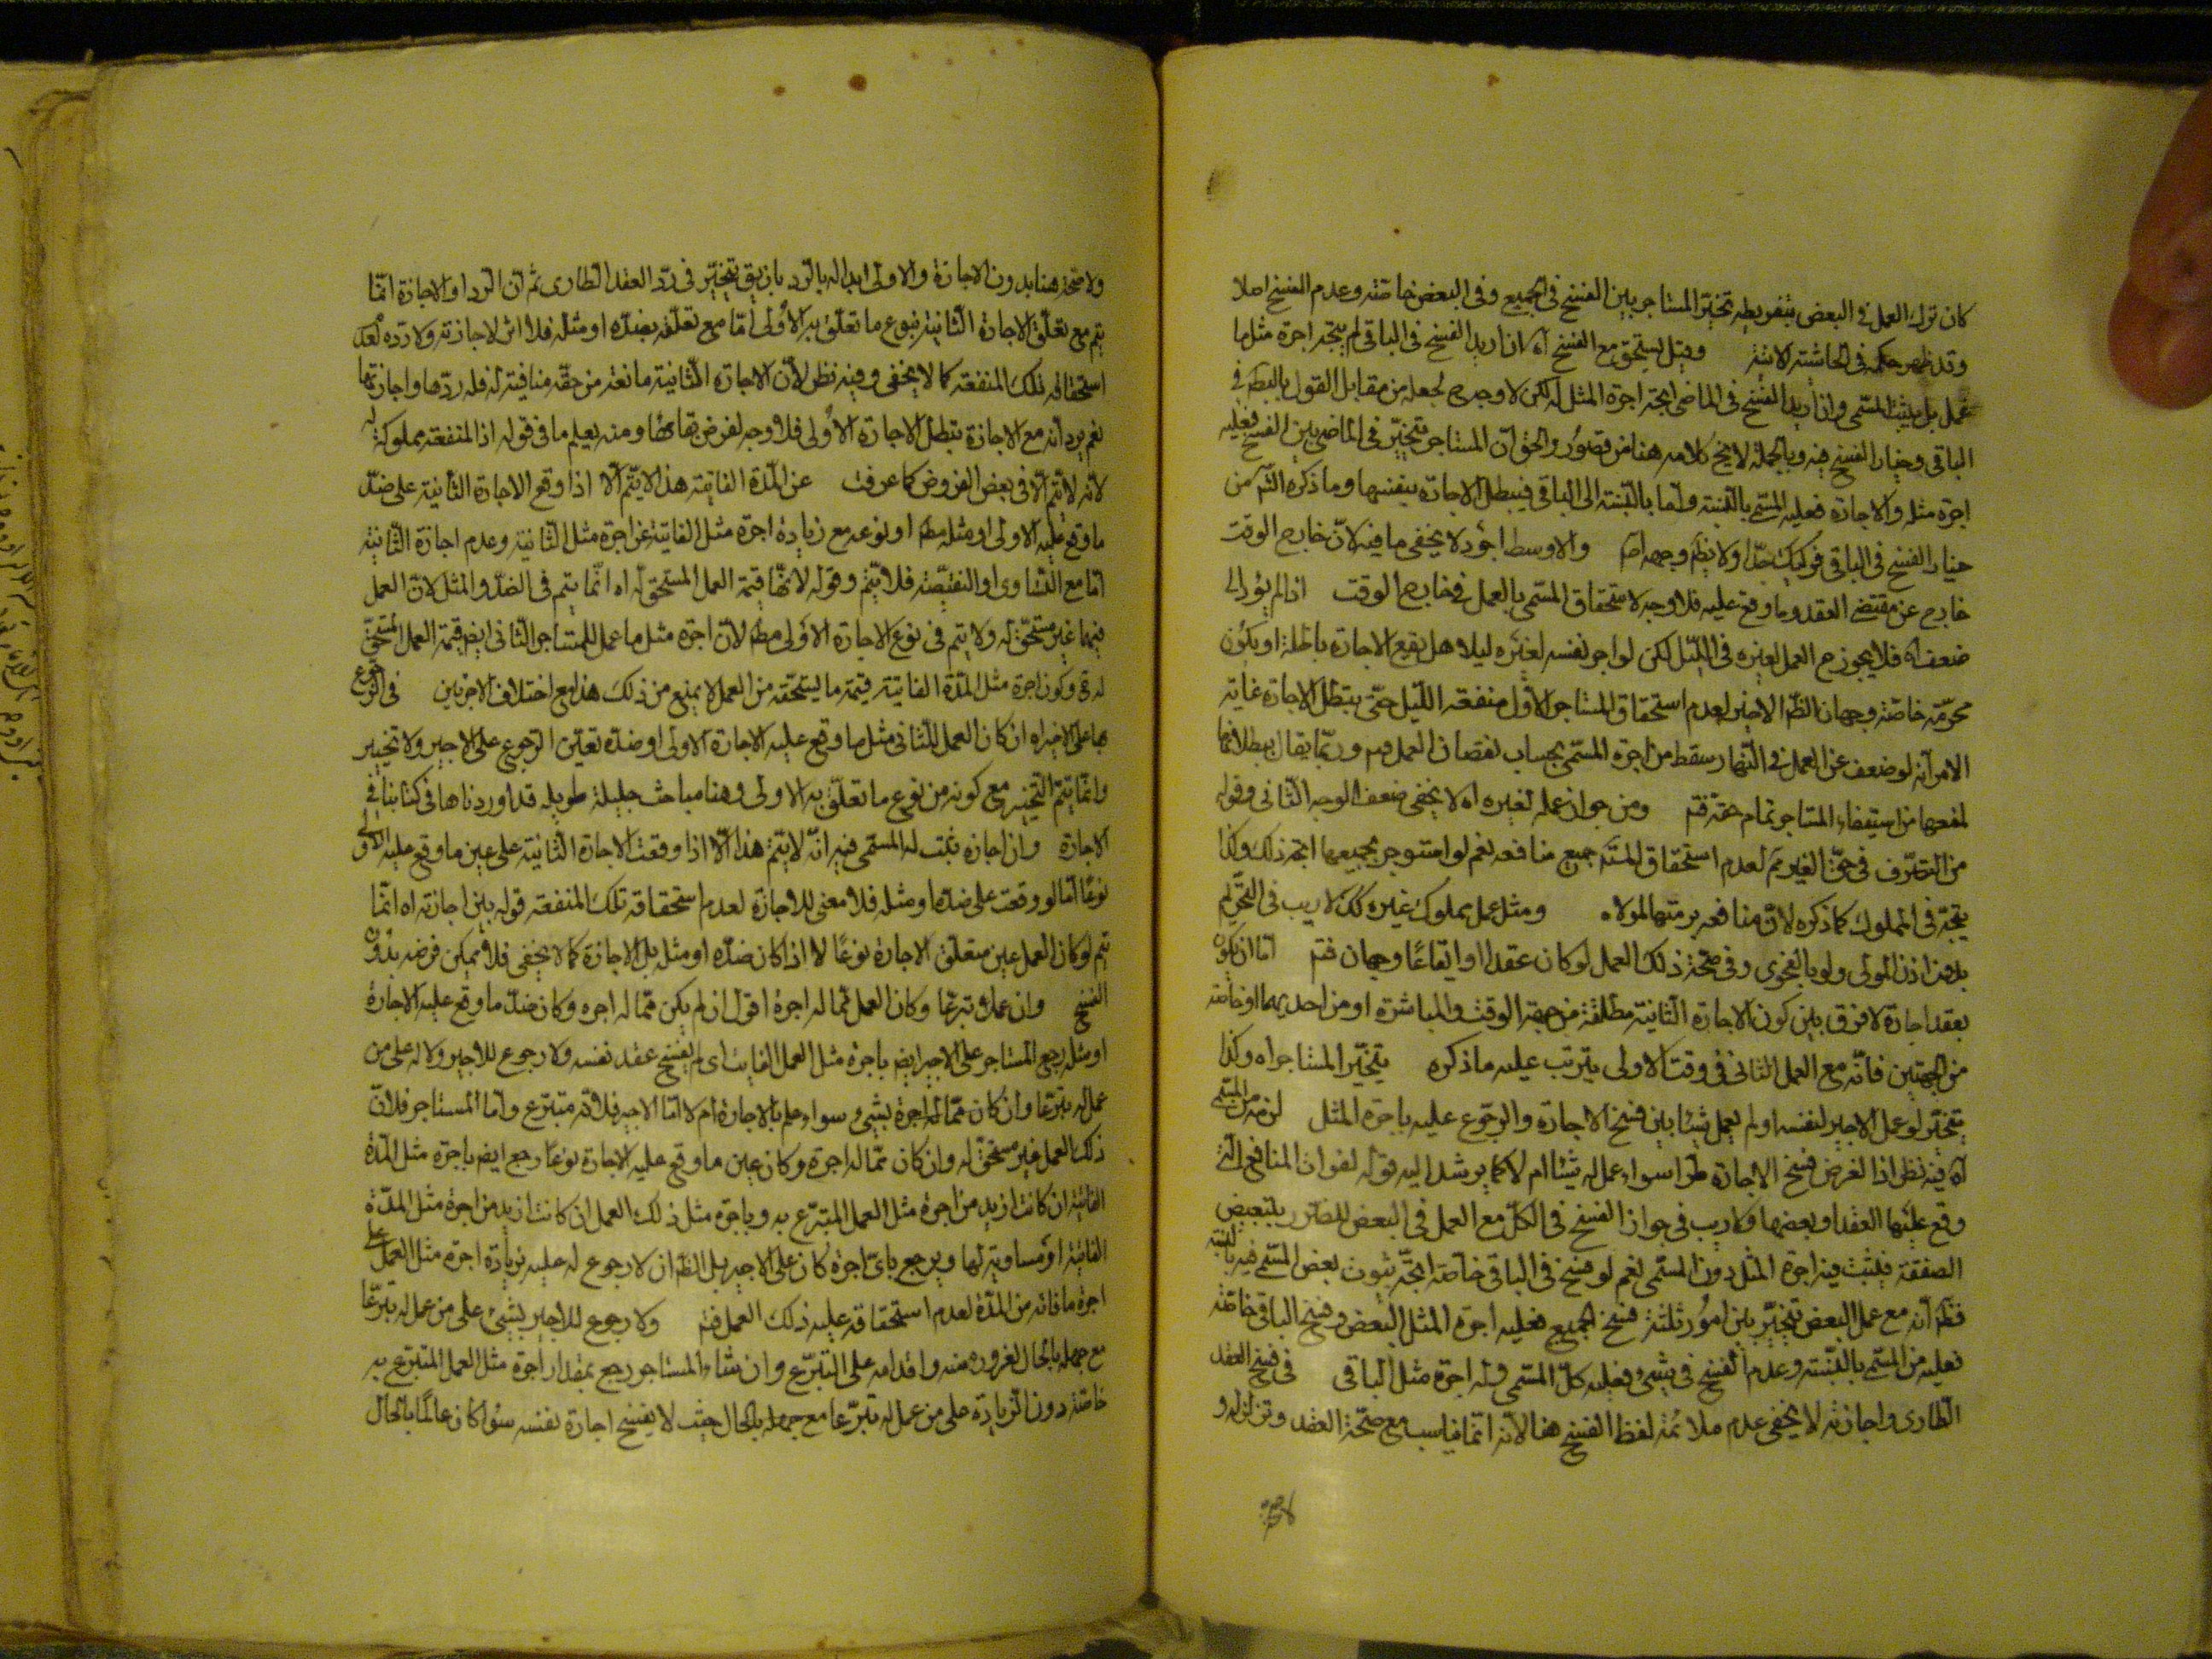 كان ترك العمل فى البعض بتفريطه تخيّر المستاجر بين الفسخ فى الجميع وفى البعض خاصّة وعدم الفسخ اصلا
وقد ظهر حكمه فى الحاشية الاتية وقيل يستحق مع الفسخ اه ان اريد الفسخ فى الباقى لم يتجه اجرة مثل ما
عمل بل يثبت المسمى وان اريد الفسخ فى الماضى اتجه اجرة المثل له لكن لا وجه ح لجعله من مقابل القول بالبطـ فى
الباقى وخيار الفسخ فيه وبالجملة لا يخ كلامه هنا من قصور والحق ان المستاجر يتخيّر فى الماضى بين الفسخ فعليه
اجرة مثله والاجازة فعليه المسمى بالنسبة وامّا بالنسبة الى الباقى فيبطل الاجازة بنفسها وما ذكره الشّ من
خيار الفسخ فى الباقى فركيك جدّا ولا يظـ وجهه اصـ والاوسط اجود لا يخفى ما فيه لانّ خارج الوقت
خارج عن مقتضى العقد وما وقع عليه فلا وجه لاستحقاق المسمى بالعمل فى خارج الوقت اذا لم يؤد الى
ضعف اه فلا يجوز ح العمل لغيره فى الليل لكن لو اجر نفسه لغيره ليلا هل يقع الاجارة باطلة او يكون
محرّمة خاصّة وجهان الظـ الاخير لعدم استحقاق المستاجر الاول منفعة الليل حتى يبطل الاجارة غاية
الامر انه لو ضعف عن العمل فى النهار سقط من اجرة المسمى بحساب نقصان العمل فيه وربّما يقال ببطلانها
لمنعها من استيفاء المستاجر تمام حقه فتـ ومن جواز عمله لغيره اه لا يخفى ضعف الوجه الثانى وقوله
من التصرّف فى حقّ الغير ثم لعدم استحقاق جميع منافعه نعم لو استوجر بجميعها اتجه ذلك وكذا
يتجّه فى المملوك كما ذكره لانّ منافعه برمتها لمولاه ومثل عمل مملوك غيره كك لا ريب فى التحريم
بدون اذن المولى ولو بالفحوى وفى صحّة ذلك العمل لو كان عقدا او ايقاعًا وجهان فتـ امّا ان يكون
بعقد اجارة لا فرق بين كون الاجارة الثانية مطلقة من جهة الوقت والمباشرة او من احديهما او خاصّة
من الجهتين فانّه مع العمل الثانى فى وقت الاولى يترتب عليه ما ذكره يتخيّر المستاجر اه وكذا
يتخيّر لو عمل الاجير لنفسه او لم يعمل شيئا بين فسخ الاجارة والرجوع عليه باجرة المثل لزمه من المسمى
اه فيه نظر اذ الفرض فسخ الاجارة طرا سواء عمل له شيئا ام لا كما يرشد اليه قوله لفوات المنافع التى
وقع عليها العقد او بعضها ولا ريب فى جواز الفسخ فى الكلّ مع العمل فى البعض للضّرر بتبعيض
الصفقة فيثبت فيه اجرة المثل دون المسمى نعم لو فسخ فى الباقى خاصّة اتجّه ثبوت بعض المسمى فيه بالنسبة
فظـ انّه مع عمل البعض تتخيّر بين امور ثلثة فسخ الجميع فعليه اجرة المثل للبعض وفسخ الباقى خاصّة
فعليه من المسمى بالنسبة وعدم الفسخ فى شىء فعليه كلّ المسمى وله اجرة مثل الباقى فى فسخ العقد
الطّارى واجازته لا يخفى عدم ملائمة لفظ الفسخ هنا لانّه انّما يناسب مع صحّة العقد وتزلزله و
لا صحّة
ولا صحّة هنا بدون الاجازة والاولى ابداله بالرد بان يق يتخيّر فى ردّ العقد الطارى ثم ان الرد او الاجازة انّما
يتم مع تعلّق الاجارة الثانية بنوع ما تعلّق به الاولى امّا مع تعلّقه بضدّه او مثله فلا اثر لاجازته ولا ردّه لعدم
استحقاقه تلك المنفعة كما لا يخفى وفيه نظر لانّ الاجارة الثانية مانعة من حقّه منافية له فله ردّها واجازتها
نعم يرد انّه مع الاجازة يبطل الاجارة الاولى فلا وجه لفرض بقائها ومنه يعلم ما فى قوله اذ المنفعة مملوكة له
لانّه لا يتم الّا فى بعض الفروض كما عرفت عن المدّة الفايتة هذا لا يتم الّا اذا وقع الاجارة الثانية على ضدّ
ما وقع عليه الاولى او مثله مطـ او نوعه مع زيادة اجرة مثل الفايتة عن اجرة مثل الثانية وعدم اجازة الثانية
امّا مع التساوى او النقيصة فلا يتم وقوله لانّها قيمة العمل المستحق له اه انّما يتم فى الضدّ والمثل لانّ العمل
فيهما غير مستحقّ له ولا يتم فى نوع الاجارة الاولى مطـ لانّ اجرة مثل ما عمل للمستاجر الثانى ايضـ قيمة العمل المستحق
له وكون اجرة مثل المدّة الفايتة قيمة ما يستحقه من العمل لا يمنع من ذلك هذا مع اختلاف الاجرتين فى الرجوع
بها على الاجير اه ان كان العمل للثانى مثل ما وقع عليه الاجارة الاولى او ضدّه تعيّن الرجوع على الاجير ولا تخيير
وانّما يتم التخيير مع كونه من نوع ما تعلّق به الاولى وهنا مباحث جليلة طويلة قد اوردناها فى كتابنا فى
الاجارة وان اجازه ثبت له المسمى فيه انّه لا يتم هذا الّا اذا وقعت الاجارة الثانية على عين ما وقع عليه الاولى
نوعًا امّا لو وقعت على ضدّه او مثله فلا معنى للاجازة لعدم استحقاقه تلك المنفعة قوله بين اجازته اه انّما
تم لو كان العمل عين متعلّق الاجارة نوعًا لا اذا كان ضدّه او مثله بل الاجازة كما لا يخفى فلا يمكن فرضه بدون
الفسخ وان عمله تبرعًا وكان العمل مما له اجرة اقول ان لم يكن ممّا له اجره وكان ضدّ ما وقع عليه الاجارة
او مثله رجع المستاجر على الاجير ايضـ باجرة مثل العمل الفايت اى لم يفسخ عقد نفسه ولا رجوع للاجير ولا له على من
عمل له تبرعًا وان كان ممّا له اجرة بشىء سواء علم بالاجارة ام لا امّا الاجير فلانّه متبرّع وامّا المستاجر فلانّ
ذلك العمل غير مستحق له وان كان ممّا له اجرة وكان عين ما وقع عليه الاجارة نوعًا رجع ايضـ باجرة مثل المدّة
الفايتة ان كانت ازيد من اجرة مثل العمل المتبرّع به وباجرة مثل ذلك العمل ان كانت ازيد من اجرة مثل المدّة
الفايتة او مساوية لها ويرجع باىّ اجرة كان على الاجير بل الظـ ان لا رجوع له عليه بزيادة اجرة مثل العمل على
اجرة ما فاته من المدّة لعدم استحقاقه عليه ذلك العمل فتـ ولا رجوع للاجير بشىء على من عمل له تبرّعًا
مع جهله بالحال لغروره منه واقدامه على التبرّع وان شاء المستاجر رجع بمقدار اجرة مثل العمل المتبرّع به
خاصّة دون الزيادة على من عمل له تبرّعا مع جهله بالحال حيث لا يفسخ اجارة نفسه سواء كان عالمًا بالحال